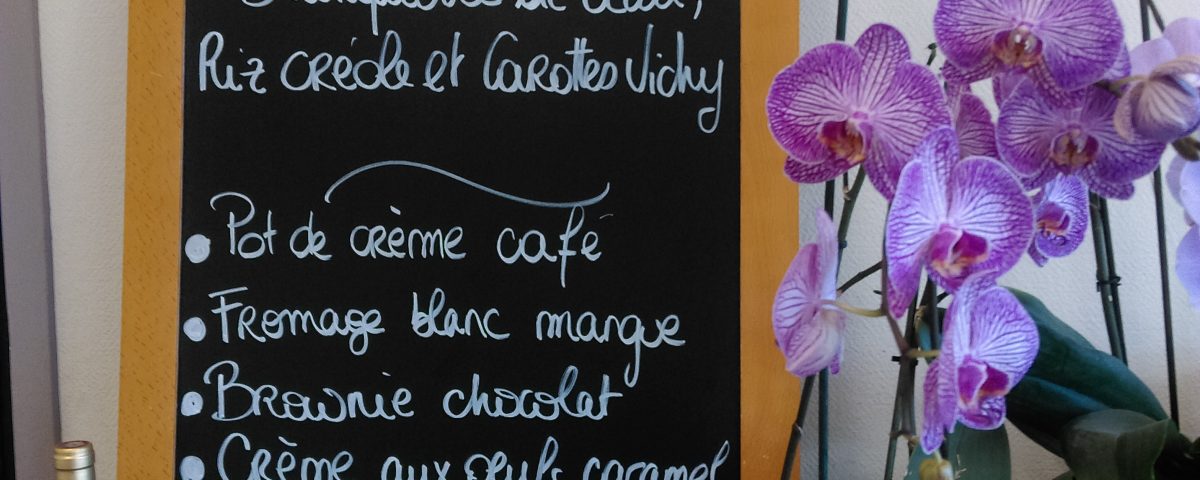 Riz créole et Carottes Vichy
Pot de crème café
Fromage blanc mangue
Brownie chocolat
Crème aux œufs caramel